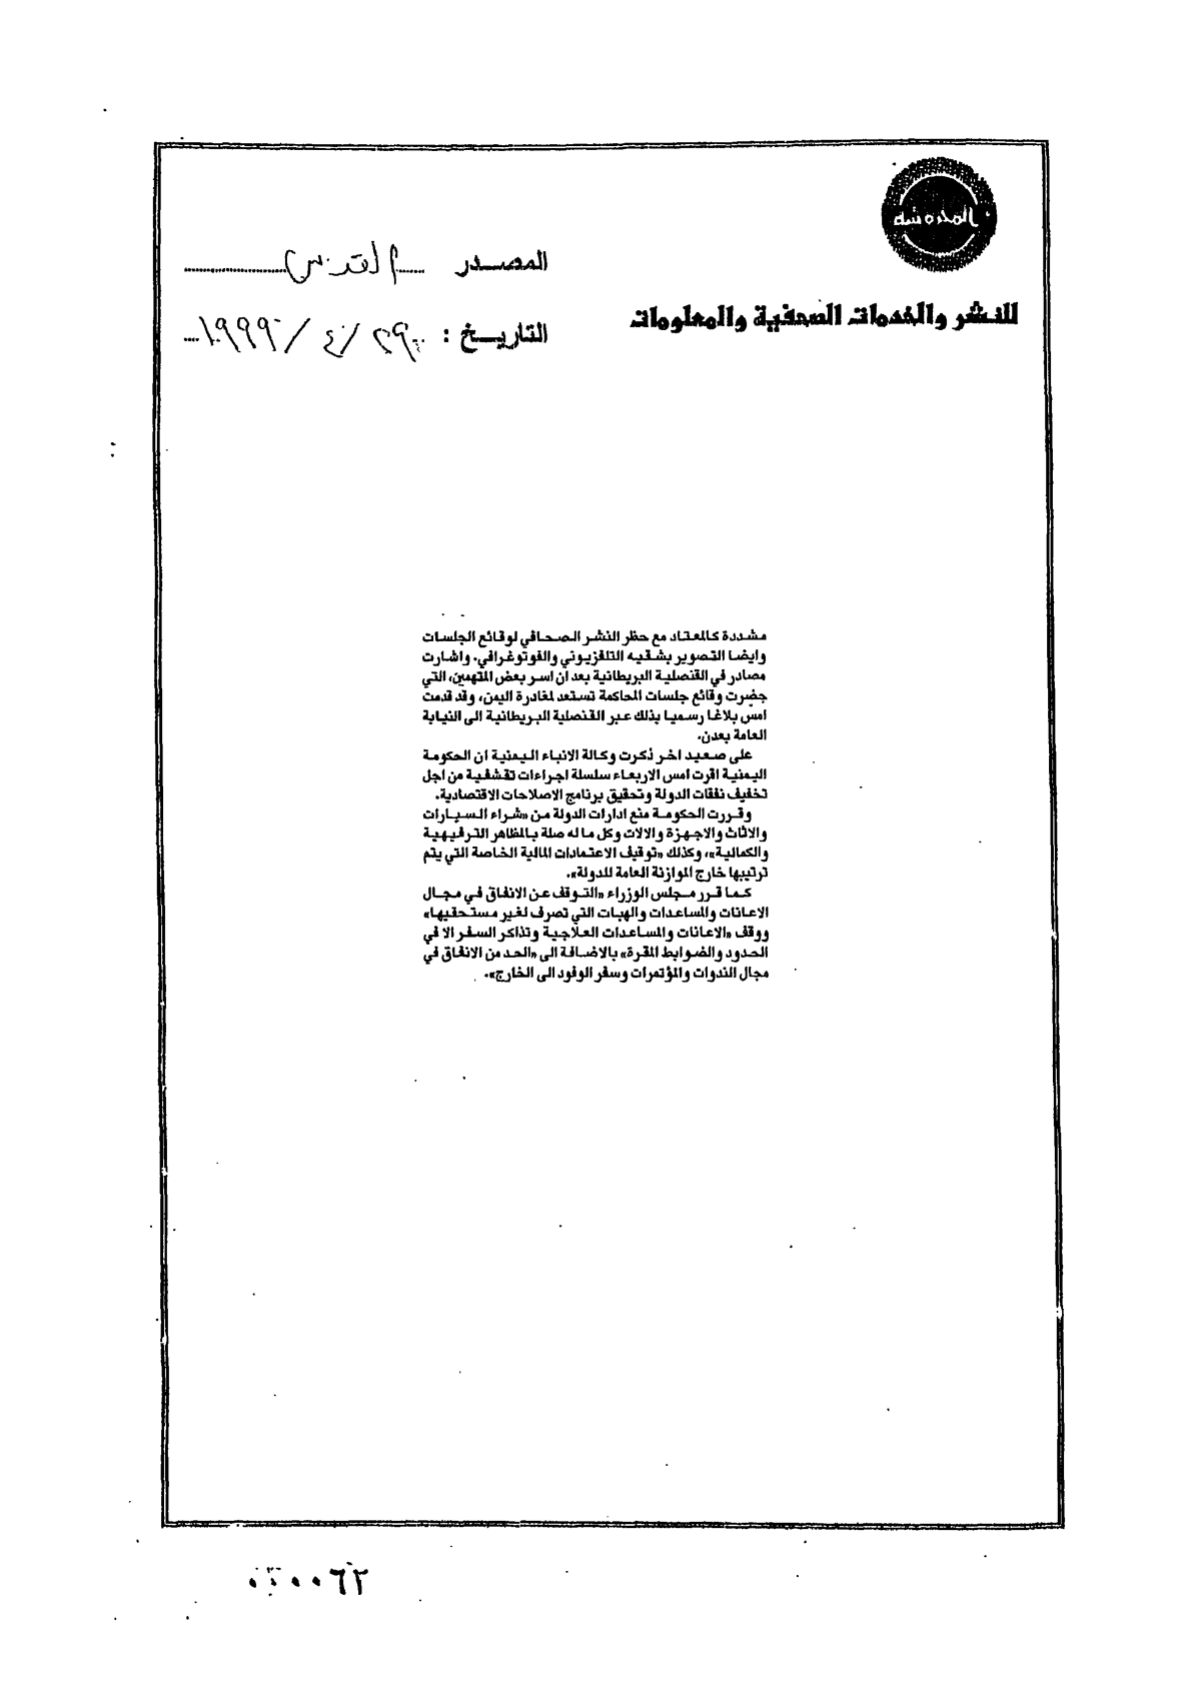 المحروسة
للنشر والخدمات الصحفية والمعلومات
المصدر القدس
التاريخ : ٢٩ / ٤ / ١٩٩٩
مشددة كالمعتاد مع حظر النشر الصحافي لوقائع الجلسات
وايضا التصوير بشقيه التلفزيوني والفوتوغرافي. واشارت
مصادر في القنصلية البريطانية بعد ان اسر بعض المتهمين، التي
حضرت وقائع جلسات المحاكمة تستعد لمغادرة اليمن، وقد قدمت
امس بلاغا رسميا بذلك عبر القنصلية البريطانية الى النيابة
العامة بعدن.
على صعيد اخر ذكرت وكالة الانباء اليمنية ان الحكومة
اليمنية اقرت امس الاربعاء سلسلة اجراءات تقشفية من اجل
تخفيف نفقات الدولة وتحقيق برنامج الاصلاحات الاقتصادية.
وقررت الحكومة منع ادارات الدولة من «شراء السيارات
والاثاث والاجهزة والالات وكل ما له صلة بالمظاهر الترفيهية
والكمالية»، وكذلك «توقيف الاعتمادات المالية الخاصة التي يتم
ترتيبها خارج الموازنة العامة للدولة».
كما قرر مجلس الوزراء «التوقف عن الانفاق في مجال
الاعانات والمساعدات والهبات التي تصرف لغير مستحقيها»
ووقف «الاعانات والمساعدات العلاجية وتذاكر السفر الا في
الحدود والضوابط المقرة» بالاضافة الى «الحد من الانفاق في
مجال الندوات والمؤتمرات وسفر الوفود الى الخارج».
٠٠٠٠٦٢